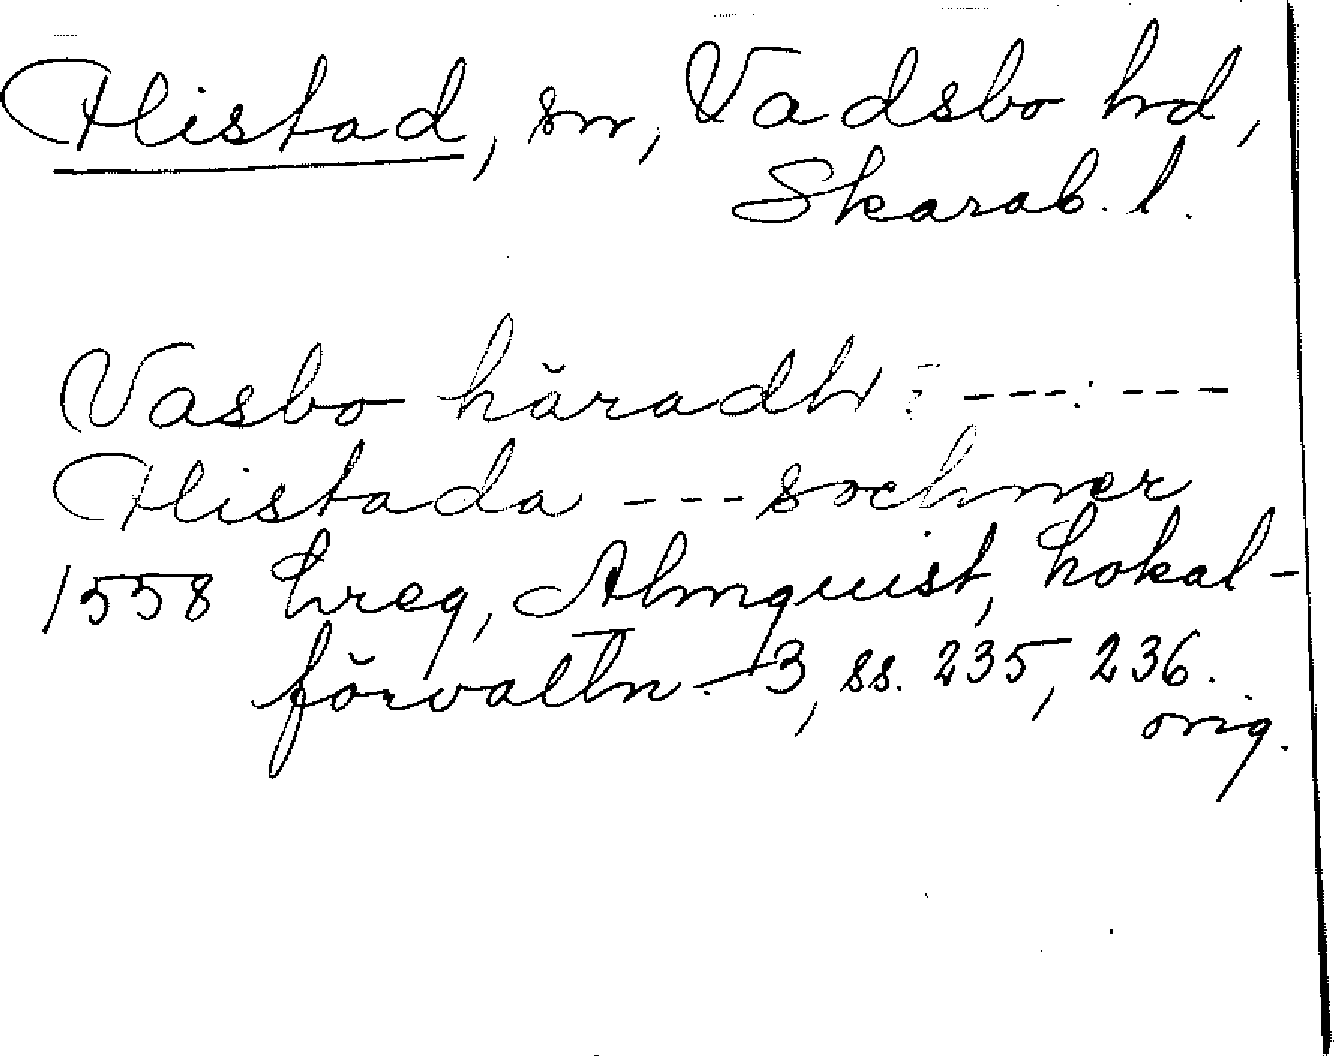 Flistad, sn, Vadsbo hd,
Skarab. l.
Vasbo häradh: ---:---
Flistada --- sochner
1558 Lreg, Almquist, Lokal-
förvaltn. 3, ss. 235, 236.
orig.